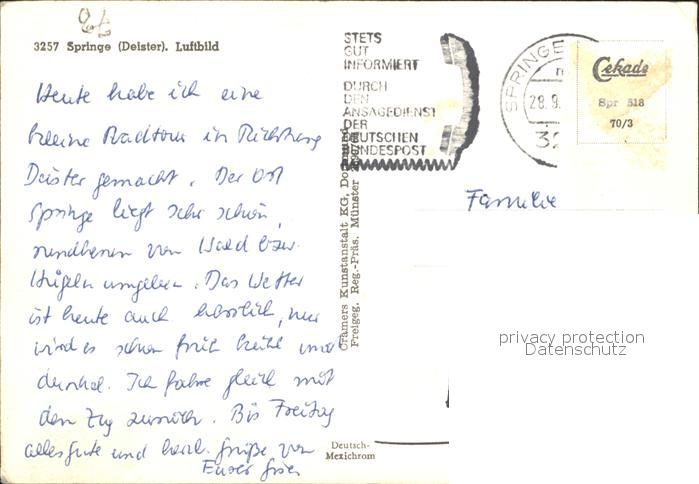 3257 Springe (Deister). Luftbild
Heute habe ich eine
kleine Radtour in Richtung
Deister gemacht. Der Ort
Springe liegt sehr schön,
rundherum von Wald bzw.
Hügeln umgeben. Das Wetter
ist heute auch herrlich, nur
wird es schon früh kühl und
dunkel. Ich fahre gleich mit
dem Zug zurück. Bis Freitag
alles gute und herzl. Grüße von
Eurer
Cramers Kunstanstalt KG, Dortmund
Freigeg. Reg.-Präs. Münster
Deutsch-
Mexichrom
STETS
GUT
INFORMIERT
DURCH
DEN
ANSAGEDIENST
DER
DEUTSCHEN
BUNDESPOST
SPRINGE
28.9.
32
Cekade
Spr 518
70/3
Familie
privacy protection
Datenschutz